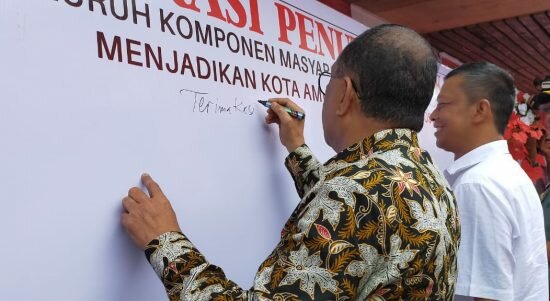 PENU
URUH KOMPONEN MASYAR
MENJADIKAN KOTA AM
Terima Kas